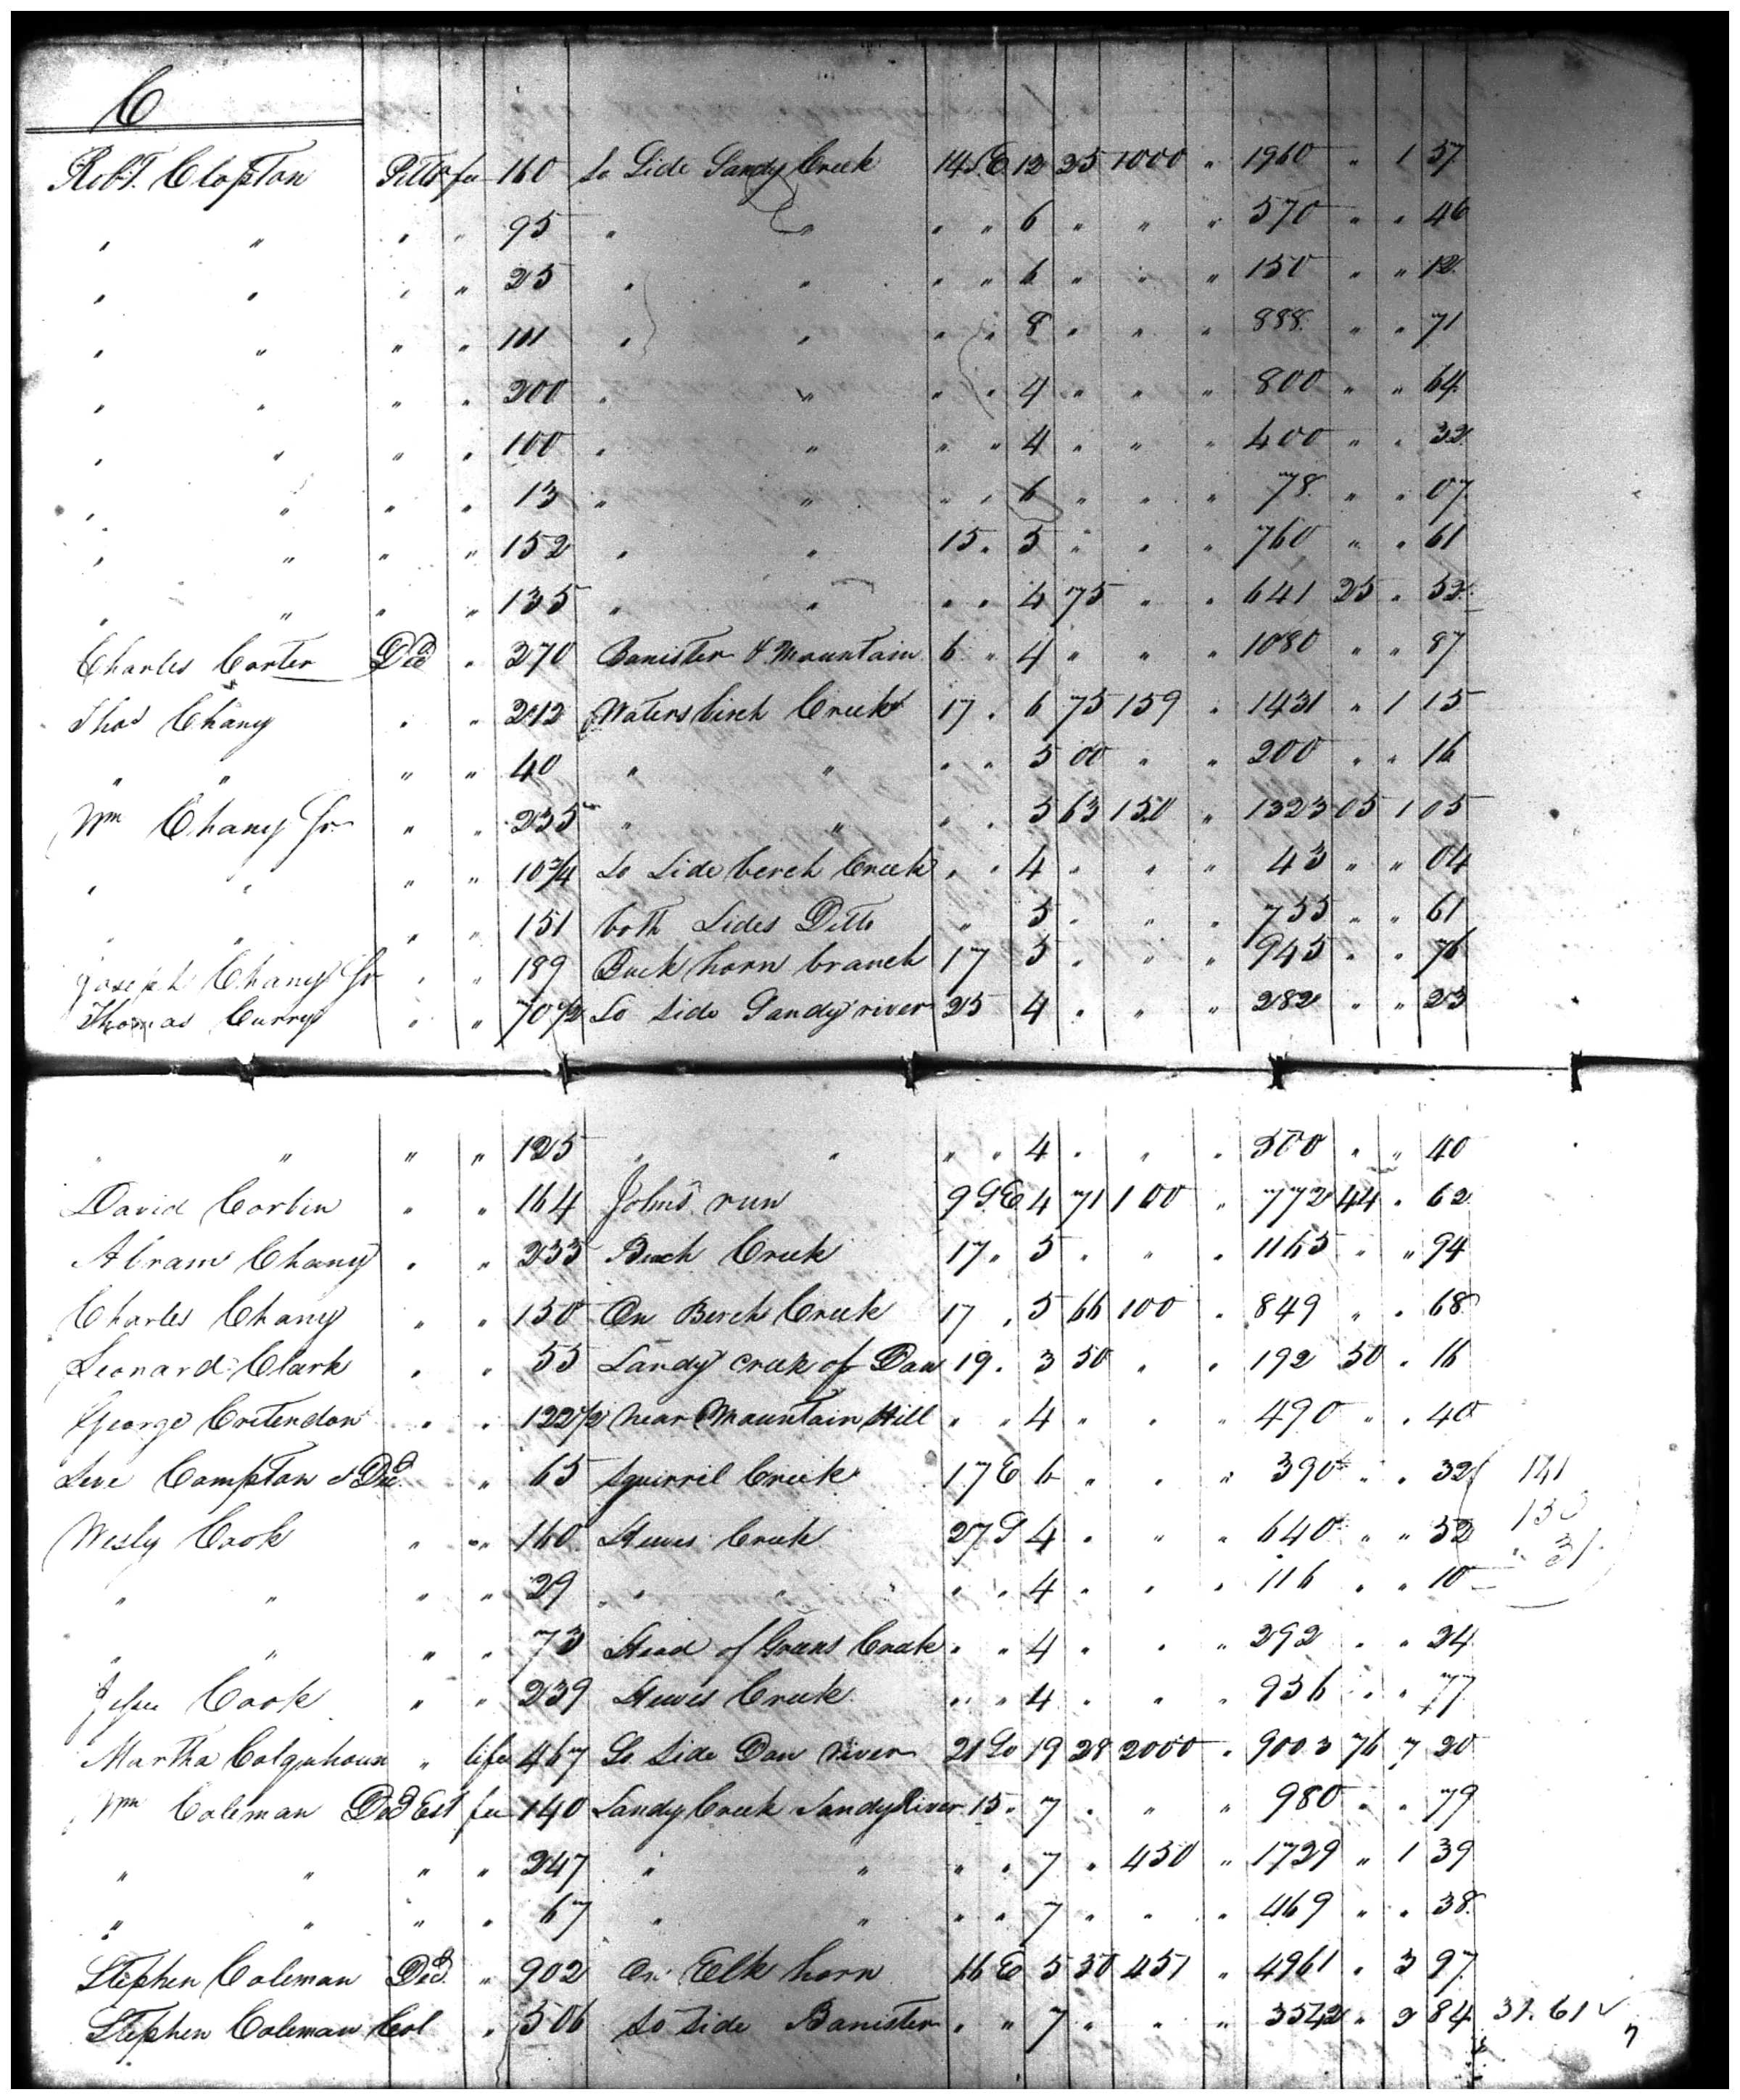 C
Robt. Clopton Pitts fee 160 So Side Sandy Creek 14 S.E 12 25 1000 " 1960 " 1 57
" " " " 95 " " " " 6 " " " 570 " " 46
" " " " 25 " " " " 6 " " " 150 " " 12
" " " " 111 " " " " 8 " " " 888 " " 71
" " " " 200 " " " " 4 " " " 800 " " 64
" " " " 100 " " " " 4 " " " 400 " " 32
" " " " 13 " " " " 6 " " " 78 " " 07
" " " " 152 " " 15 " 5 " " " 760 " " 61
" " " 135 " " " " 4 75 " " 641 25 " 52
Charles Carter Decd " 270 Banister & Mountain 6 " 4 " " " 1080 " " 87
Thos Chany " " 212 Waters birch Creek 17 " 6 75 159 " 1431 " 1 15
" " " " 40 " " " " 5 00 " " 200 " " 16
Wm Chany Jr " " 235 " " " " 5 63 150 " 1323 05 1 05
" " " " 10 3/4 So Side berch Creek " " 4 " " " 43 " " 04
" " " " 151 both Sides Ditto " 5 " " " 755 " " 61
Joseph Chany Jr " " 189 Buck horn branch 17 5 " " " 945 " " 76
Thomas Curry " " 70 1/2 So Side Sandy river 25 4 " " " 282 " " 23
" " " " 125 " " " " 4 " " " 500 " " 40
David Corbin " " 164 Johns run 9 S.E 4 71 100 " 772 44 " 62
Abram Chany " " 233 Birch Creek 17 " 5 " " " 1165 " " 94
Charles Chany " " 150 On Berch Creek 17 " 5 66 100 " 849 " " 68
Leonard Clark " " 55 Sandy Creek of Dan 19 " 3 50 " " 192 50 " 16
George Critendon " " 122 1/2 near Mountain Hill " " 4 " " " 490 " " 40
Compton Decd " 65 Squirril Creek 17 E 6 " " " 390 " " 32 141
Wesly Cook " " 160 Creek 27 S 4 " " " 640 " " 52 130
" " " " 29 " " " " 4 " " " 116 " " 10 " 31
" " " " 73 Head of Greens Creek " " 4 " " " 292 " " 24
Jesse Cook " " 239 Creek " " 4 " " " 956 " " 77
Martha Colquhoun " life 467 So Side Dan river 21 So 19 28 2000 " 9003 76 7 20
Wm Coleman Decd Est fee 140 Sandy Creek Sandy River 15 " 7 " " " 980 " " 79
" " " " 247 " " " " 7 " 450 " 1729 " 1 39
" " " " 67 " " " " 7 " " " 469 " " 38
Stephen Coleman Decd " 902 On Elk horn 16 E 5 50 451 " 4961 " 3 97
Stephen Coleman Col " 506 So Side Banister " " 7 " " " 3542 " 2 84 31.61